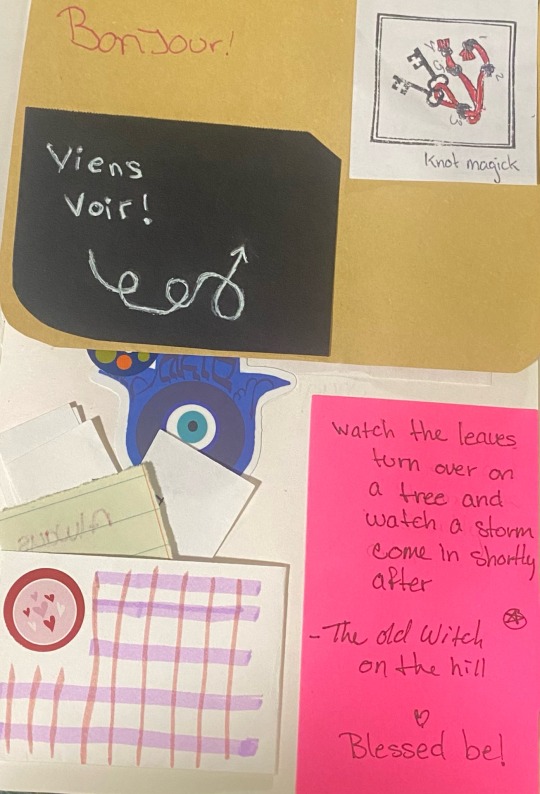 Bonjour!
Knot magick
Viens
Voir!
watch the leaves
turn over on
a tree and
watch a storm
come in shortly
after
- The old Witch
on the hill
Blessed be!